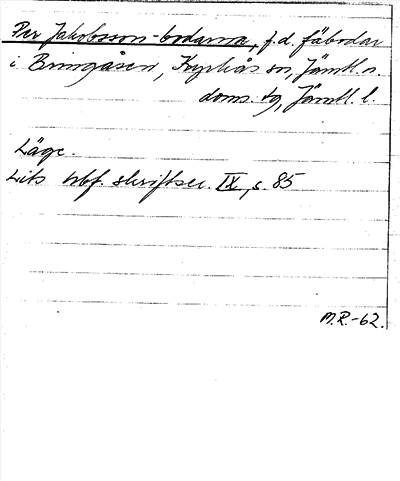 Per Jakobsson-bodarna, f.d. fäbodar
i Bringåsen, Kyrkås sn, Jämtl. n.
doms. tg, Jämtl. l.
Läge.
Lits hbf. skriftser. IX, s. 85
M.R.-62.